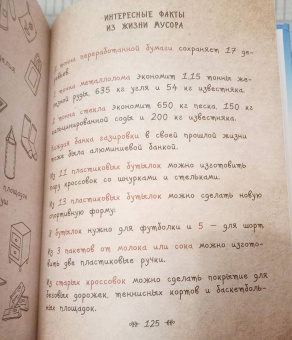 ИНТЕРЕСНЫЕ ФАКТЫ
ИЗ ЖИЗНИ МУСОРА
1 тонна переработанной бумаги сохраняет 17 де-
ревьев.
тонна металлолома экономит 1,15 тонны же-
лезной руды, 635 кг угля и 54 кг известняка.
тонна стекла экономит 650 кг песка, 150 кг
кальцинированной соды и 200 кг известняка.
Каждая банка газировки в своей прошлой жизни
тоже была алюминиевой банкой.
Из 11 пластиковых бутылок можно изготовить
пару кроссовок со шнурками и стельками.
Из 13 пластиковых бутылок можно сделать новую
спортивную форму:
8 бутылок нужно для футболки и 5 – для шорт
Из 3 пакетов от молока или сока можно изгото-
вить две пластиковые ручки.
Из старых кроссовок можно сделать покрытие для
беговых дорожек, теннисных кортов и баскетболь-
ных площадок.
125
площади